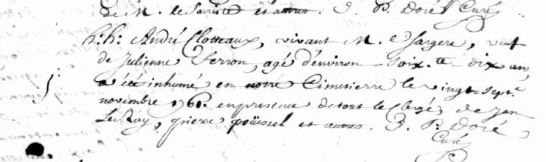 de M. et autres. J. P. Doré Curé
h.h. André Clotteaux, vivant M. e Sargere, veuf
de Julienne Ferron, agé d'environ Soix.te dix ans,
a été inhumé en notre Cimetierre le vingt sept.
novembre 1761. en presence de tout le Clergé, de Jean
LeRoy, pierre poüssel et autres. J. P. Doré,
Curé